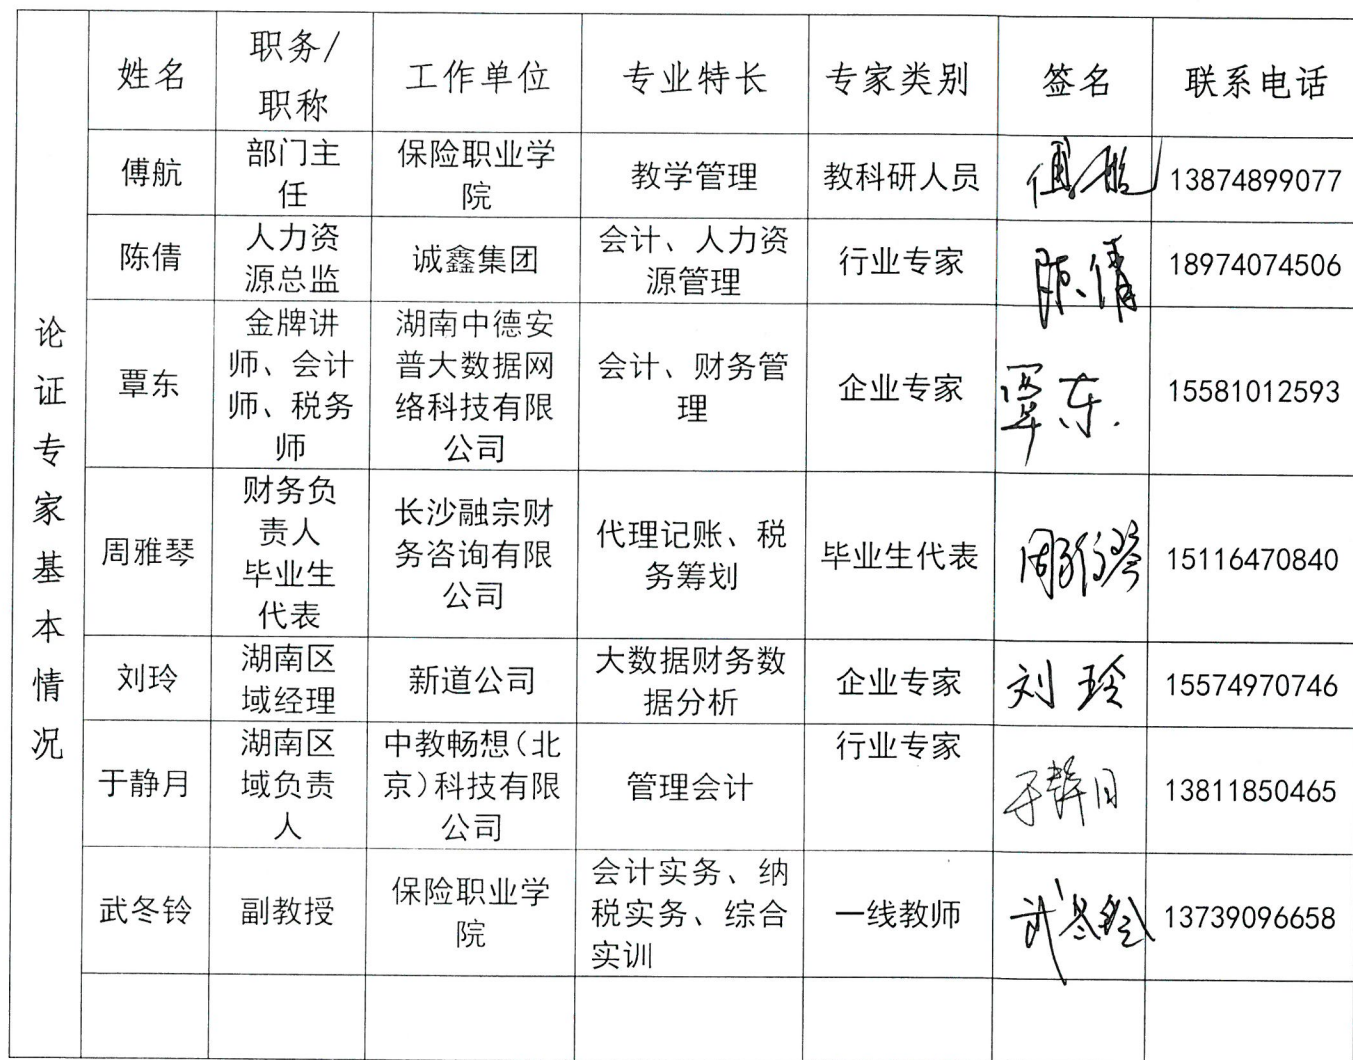 论证专家基本情况
姓名
职务/
职称
工作单位
专业特长
专家类别
签名
联系电话
傅航
部门主
任
保险职业学
院
教学管理
教科研人员
傅航
13874899077
陈倩
人力资
源总监
诚鑫集团
会计、人力资
源管理
行业专家
陈倩
18974074506
覃东
金牌讲
师、会计
师、税务
师
湖南中德安
普大数据网
络科技有限
公司
会计、财务管
理
企业专家
覃东
15581012593
周雅琴
财务负
责人
毕业生
代表
长沙融宗财
务咨询有限
公司
代理记账、税
务筹划
毕业生代表
周雅琴
15116470840
刘玲
湖南区
域经理
新道公司
大数据财务数
据分析
企业专家
刘玲
15574970746
于静月
湖南区
域负责
人
中教畅想（北
京）科技有限
公司
管理会计
行业专家
于静月
13811850465
武冬铃
副教授
保险职业学
院
会计实务、纳
税实务、综合
实训
一线教师
武冬铃
13739096658